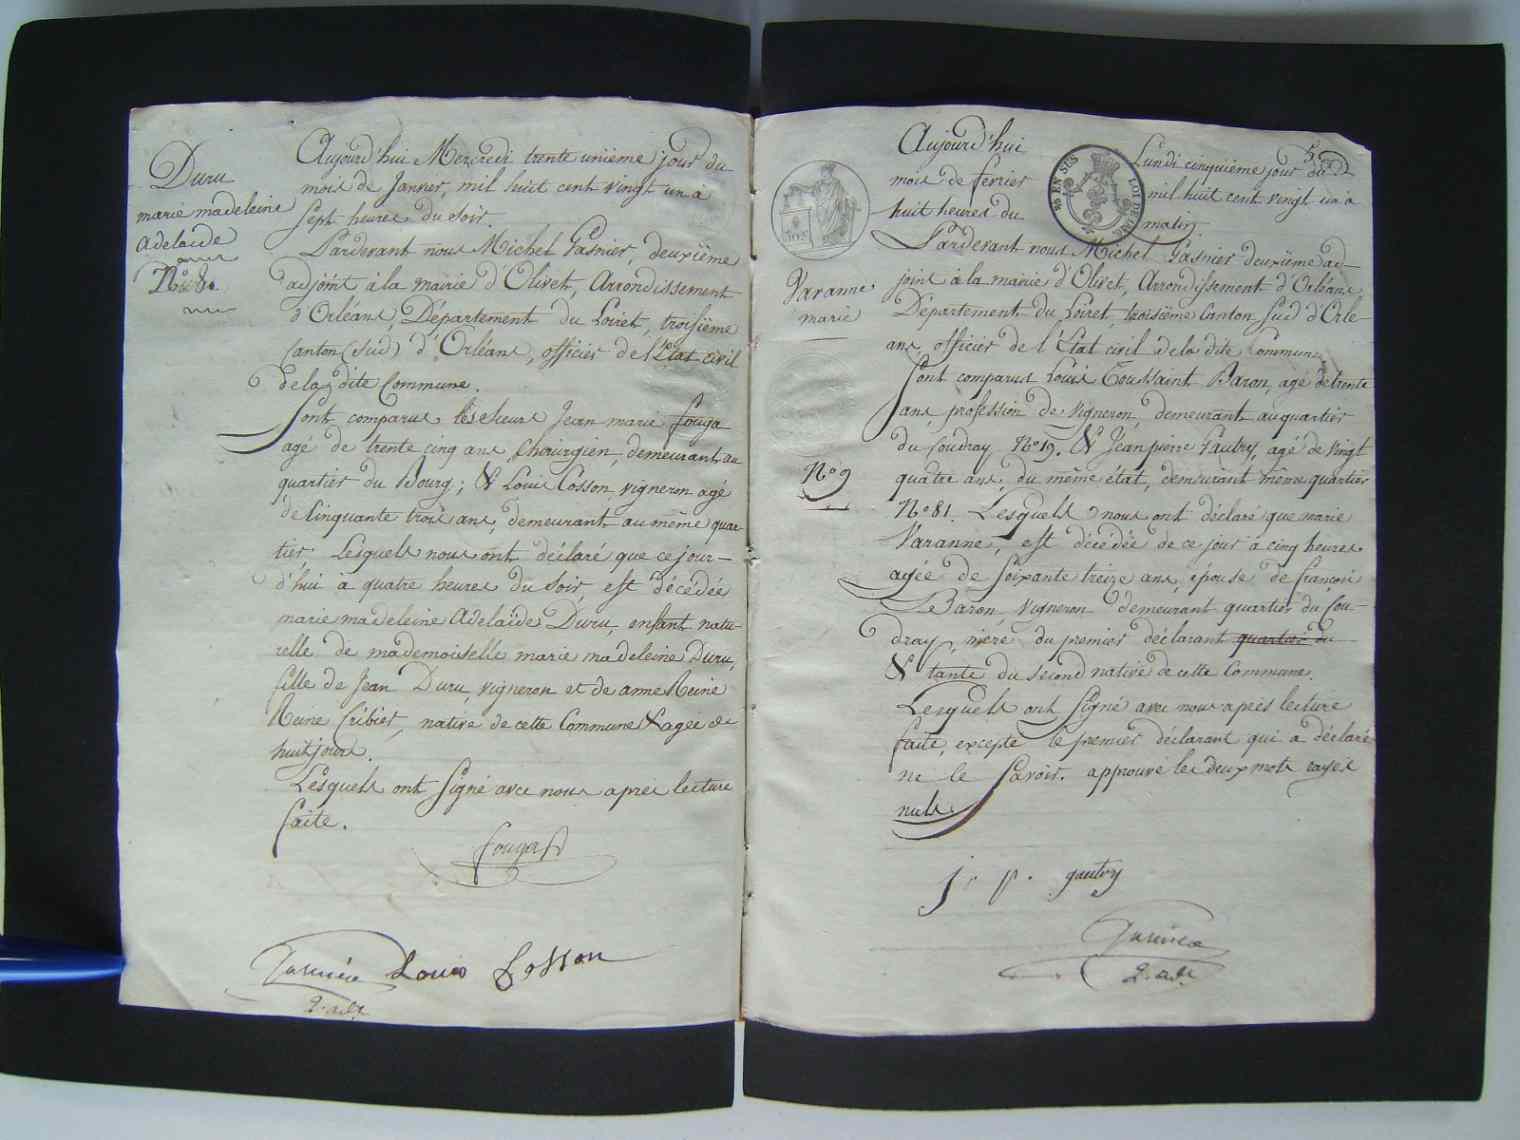 Duru
marie madeleine
adelaïde
N.º 8.
Aujourd'hui Mercredi trente unième jour du
mois de Janvier, mil huit cent vingt un à
Sept heures du Soir.
Pardevant nous Michel Gasnier, deuxième
adjoint à la mairie d'Olivet, Arrondissement
d'Orléans, Département du Loiret, troisième
Canton (sud) d'Orléans, officier de l'Etat civil
de la dite Commune.
Sont comparus les sieurs Jean marie
agé de trente cinq ans, Chirurgien, demeurant au
quartier du Bourg; & Louis Cosson vigneron agé
de Cinquante trois ans, demeurant au même quar-
tier, Lesquels nous ont déclaré que ce jour-
d'hui à quatre heures du Soir, est décédée
marie madeleine Adelaïde Duru, enfant natu-
relle de mademoiselle marie madeleine Duru,
fille de Jean Duru, vigneron et de anne Reine
Reine Cribier, native de cette Commune & agée de
huit jours.
Lesquels ont Signé avec nous après lecture
faite.
Louis Cosson
2. adj.t
5
Varanne
marie
N.º 9
Aujourd'hui Lundi cinquième jour du
mois de février mil huit cent vingt un à
huit heures du matin.
Pardevant nous Michel Gasnier deuxième ad-
joint à la mairie d'Olivet, Arrondissement d'Orléans
Département du Loiret, troisième Canton Sud d'Orlé-
ans, officier de l'État civil de la dite Commune,
Sont comparus Louis Toussaint Baron, agé de trente
ans, profession de vigneron, demeurant au quartier
du Coudray N.º 19. & Jean pierre Gautry, agé de vingt
quatre ans, du même état, demeurant même quartier
N.º 81. Lesquels nous ont déclaré que marie
Varanne, est décédée de ce jour à cinq heures
agée de Soixante treize ans, épouse de françois
Baron, vigneron demeurant quartier du Cou-
dray, mère du premier déclarant quartier du
& tante du Second native de cette Commune.
Lesquels ont Signé avec nous après lecture
faite, excepté le premier déclarant qui a déclaré
ne le Savoir. approuvé les deux mots rayés
nuls
J. p. gautry
2. adj.t